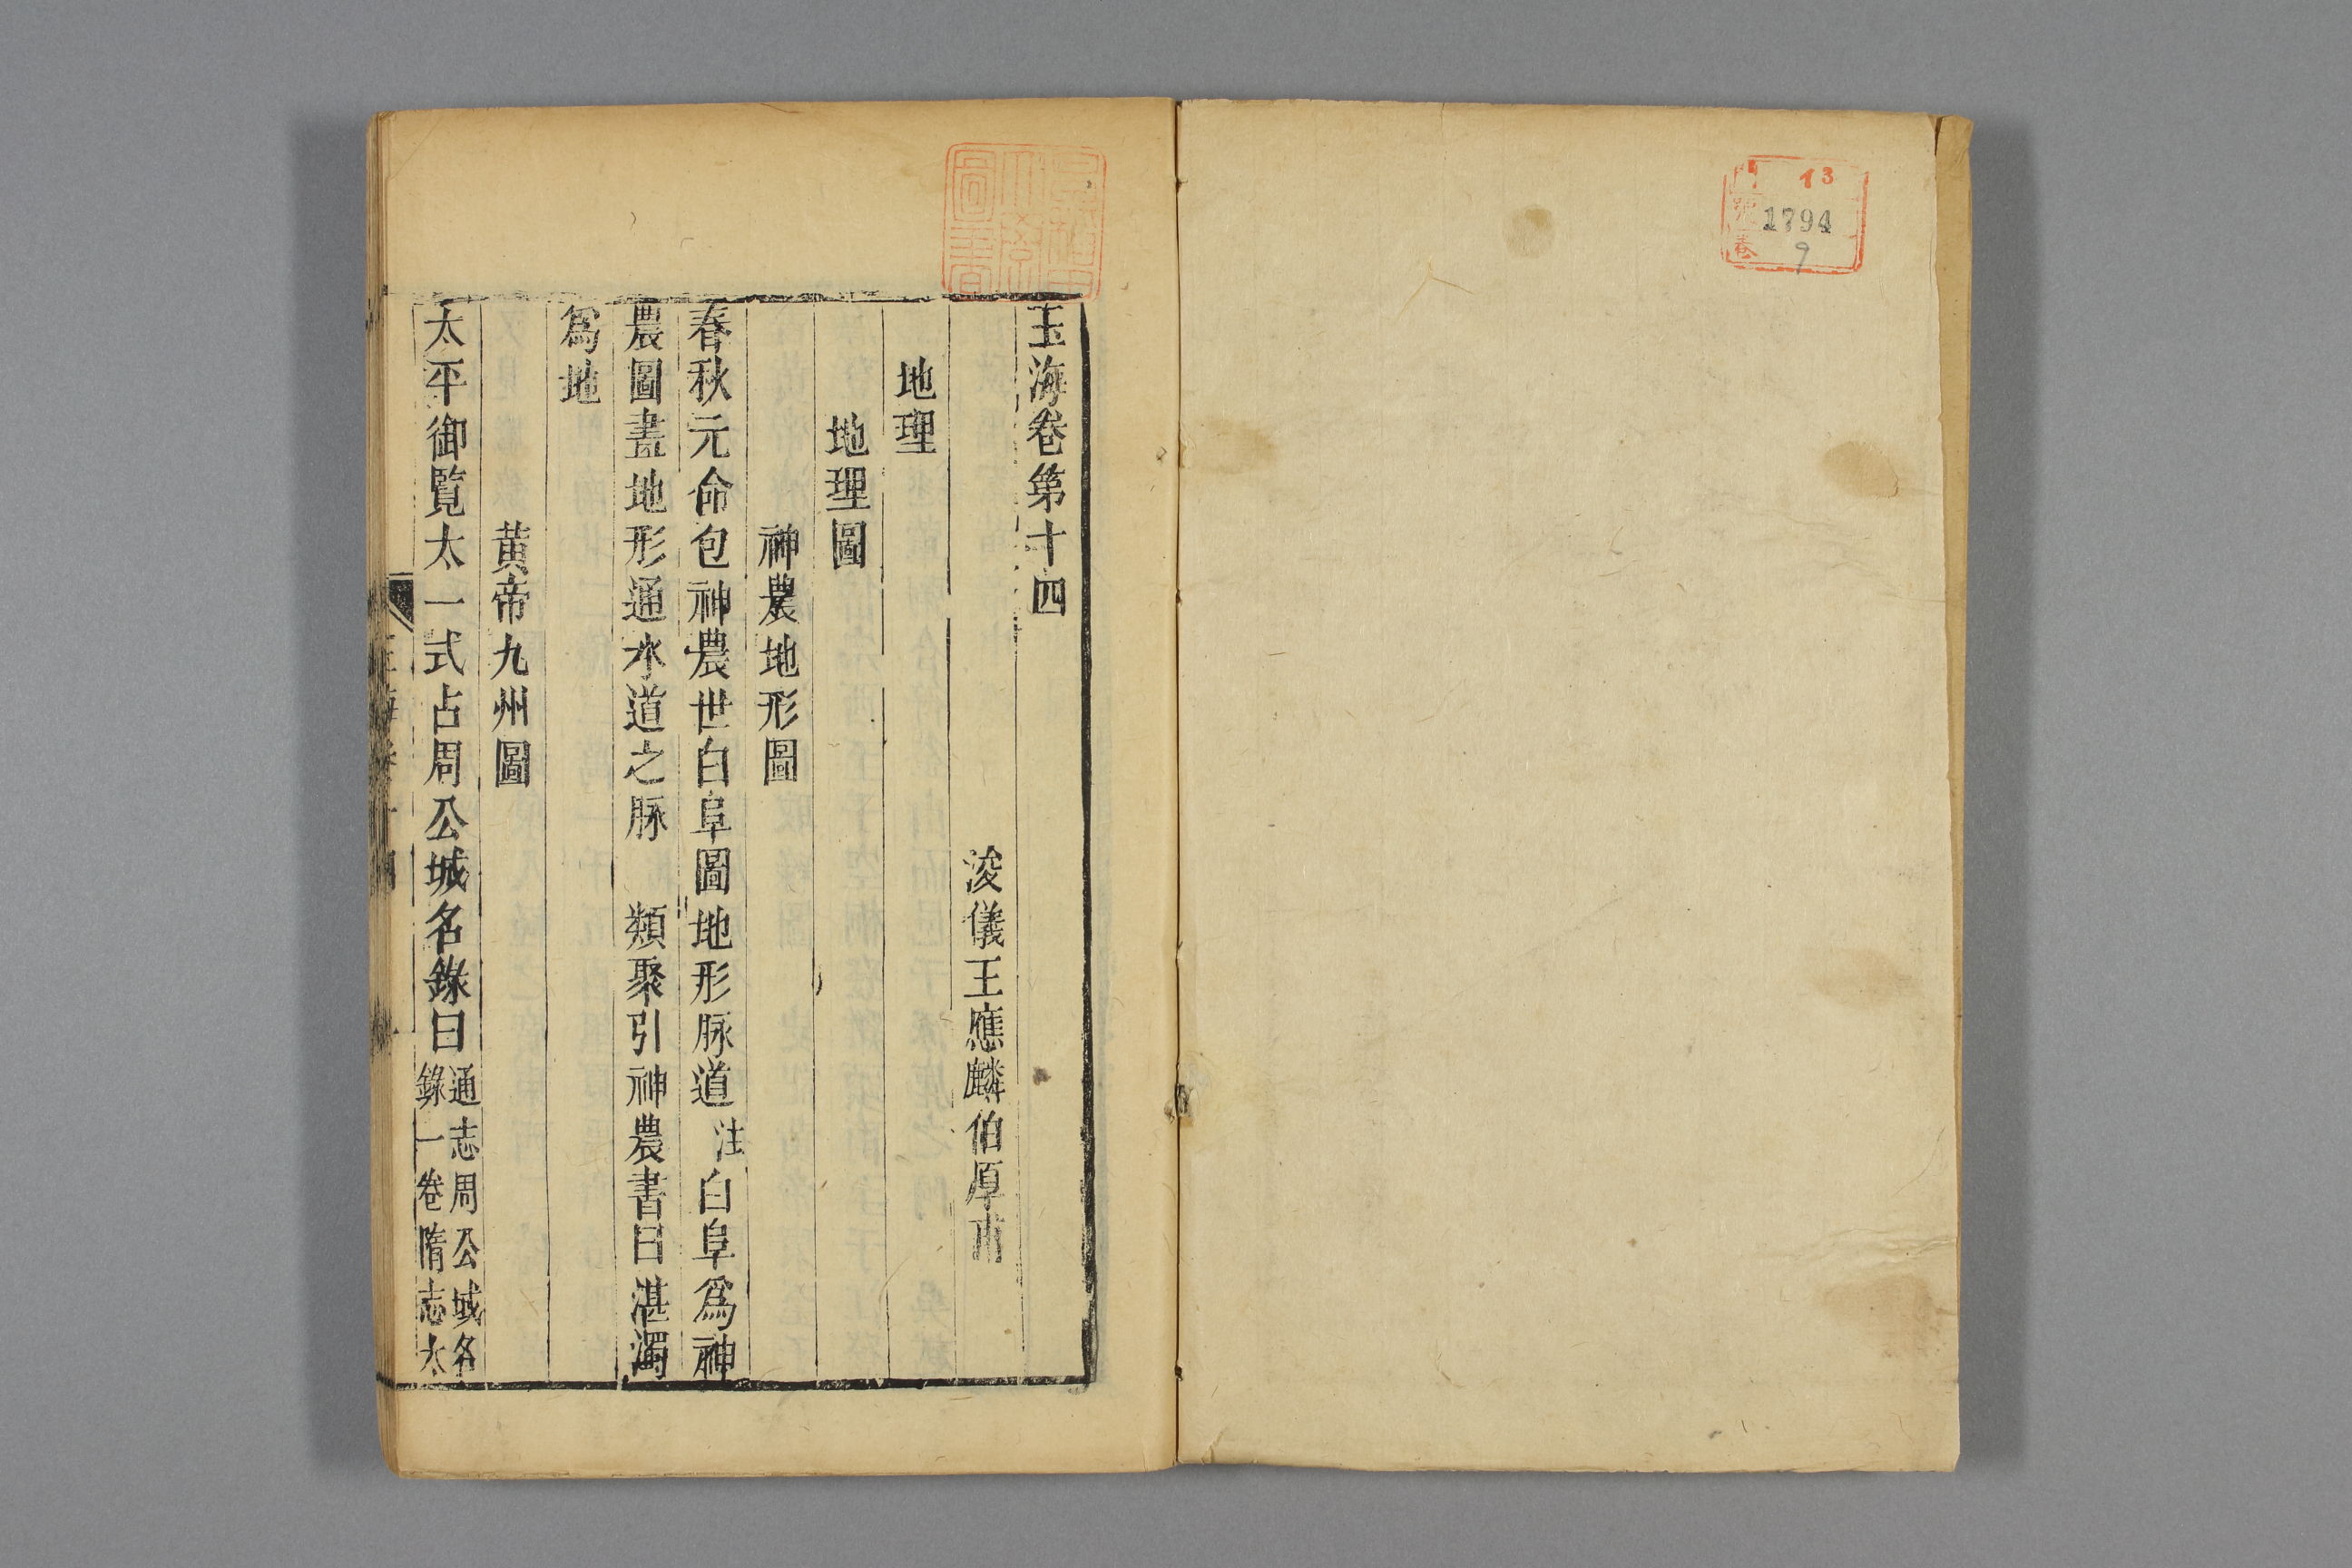 門 13
號 1794
卷 9
玉海卷第十四
浚儀王應麟伯厚甫
地理
地理圖
神農地形圖
春秋元命包神農世白阜圖地形脉道注白阜爲神
農圖畫地形通水道之脉 類聚引神農書曰湛濁
爲地
黃帝九州圖
太平御覧太一式占周公城名錄曰通志周公城名
錄一卷隋志太